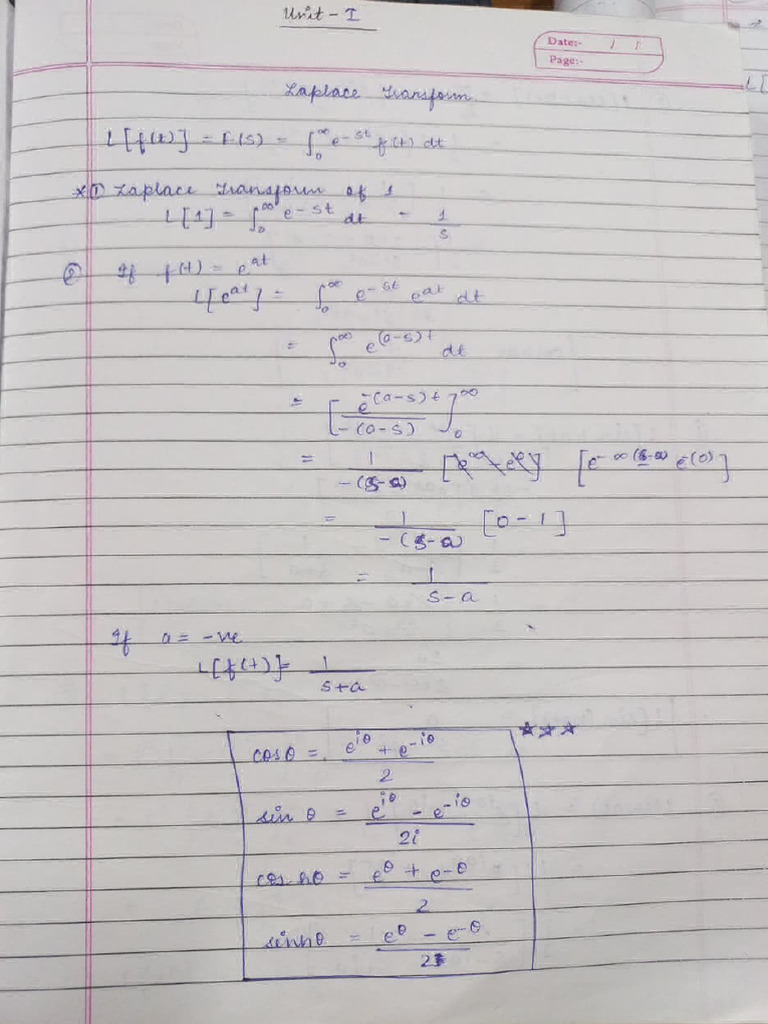 Unit - I
Date:- / /
Page:-
Laplace Transform
L[f(t)] = F(s) = ∫₀^∞ e^-st f(t) dt
*① Laplace Transform of 1
L[1] = ∫₀^∞ e^-st dt = 1/s
② If f(t) = e^at
L[e^at] = ∫₀^∞ e^-st e^at dt
= ∫₀^∞ e^(a-s)t dt
= [e^-(a-s)t / -(a-s)]₀^∞
= 1/-(s-a) [e^-∞(s-a) e^-(0)]
= 1/-(s-a) [0-1]
= 1/s-a
If a = -ve
L[f(t)] = 1/s+a
☆☆☆
cosθ = e^iθ + e^-iθ / 2
sin θ = e^iθ - e^-iθ / 2i
cos hθ = e^θ + e^-θ / 2
sinhθ = e^θ - e^-θ / 2